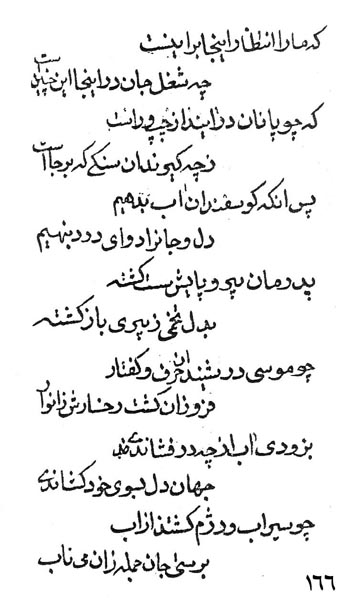 که ما را انتظار اینجا براینست
چه شغل جان در اینجا این چنین است
که چوپانان در آیند از چپ و راست
ز چه گیرند آن سنگی که بر جا است
پس آنکه گوسفندان آب بدهیم
دل و جانرا دوای درد بنهیم
پدرمان پیر و پایش سست گشته
بدل زخمی ز پیری باز گشته
چو موسی در شنید آن حرف و گفتار
فروزان گشت رخسارش ز انوار
بزودی آب از چه در فشاندی
جهان دل بسوی خود کشاندی
چو سیراب و درژم گشتند از آب
برستی جان جمله زان می ناب
۱۶۶